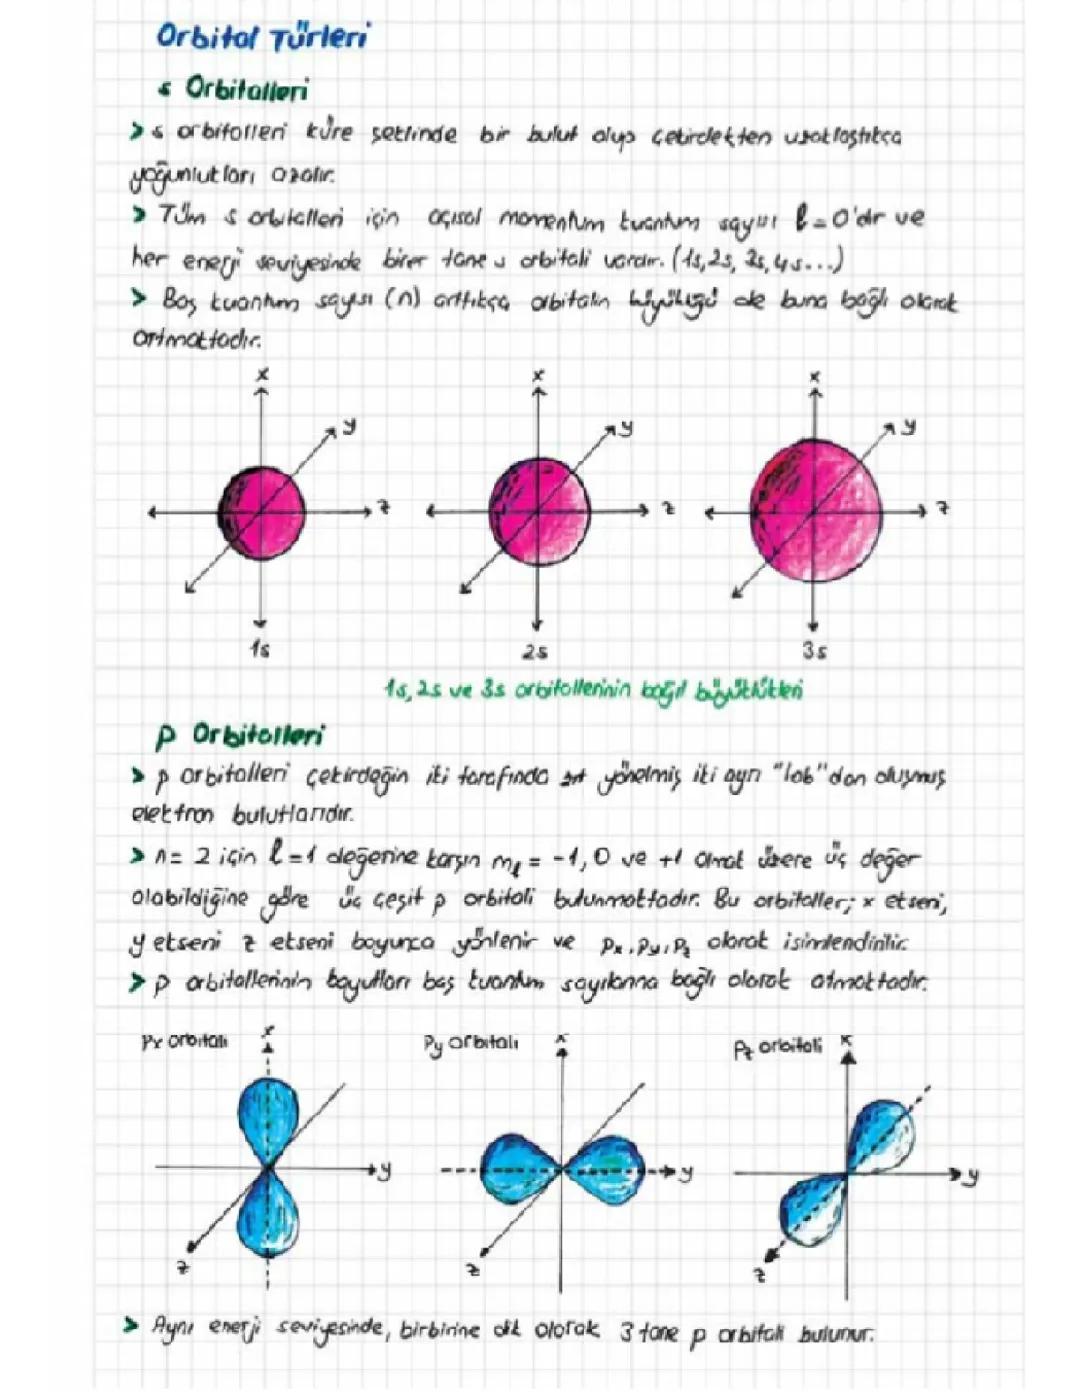 Orbital Türleri
s Orbitalleri
> s orbitalleri küre şeklinde bir bulut olup çekirdekten uzaklaştıkça
yoğunlukları azalır.
> Tüm s orbitalleri için açısal momentum kuantum sayısı l = 0'dır ve
her enerji seviyesinde birer tane s orbitali vardır. (1s, 2s, 3s, 4s...)
> Baş kuantum sayısı (n) arttıkça orbitalin büyüklüğü de buna bağlı olarak
artmaktadır.
x x x
y y y
z z z
1s 2s 3s
1s, 2s ve 3s orbitallerinin bağıl büyüklükleri
p Orbitalleri
> p orbitalleri çekirdeğin iki tarafında yönelmiş iki ayrı "lob"dan oluşmuş
elektron bulutlarıdır.
> n = 2 için l = 1 değerine karşın ml = -1, 0 ve +1 olmak üzere üç değer
alabildiğine göre üç çeşit p orbitali bulunmaktadır. Bu orbitaller; x ekseni,
y ekseni z ekseni boyunca yönlenir ve Px, Py, Pz olarak isimlendirilir.
> p orbitallerinin boyutları baş kuantum sayılarına bağlı olarak atmaktadır.
Px orbitali x Py orbitali x Pz orbitali x
y y y
z z z
> Aynı enerji seviyesinde, birbirine dik olarak 3 tane p orbitali bulunur.